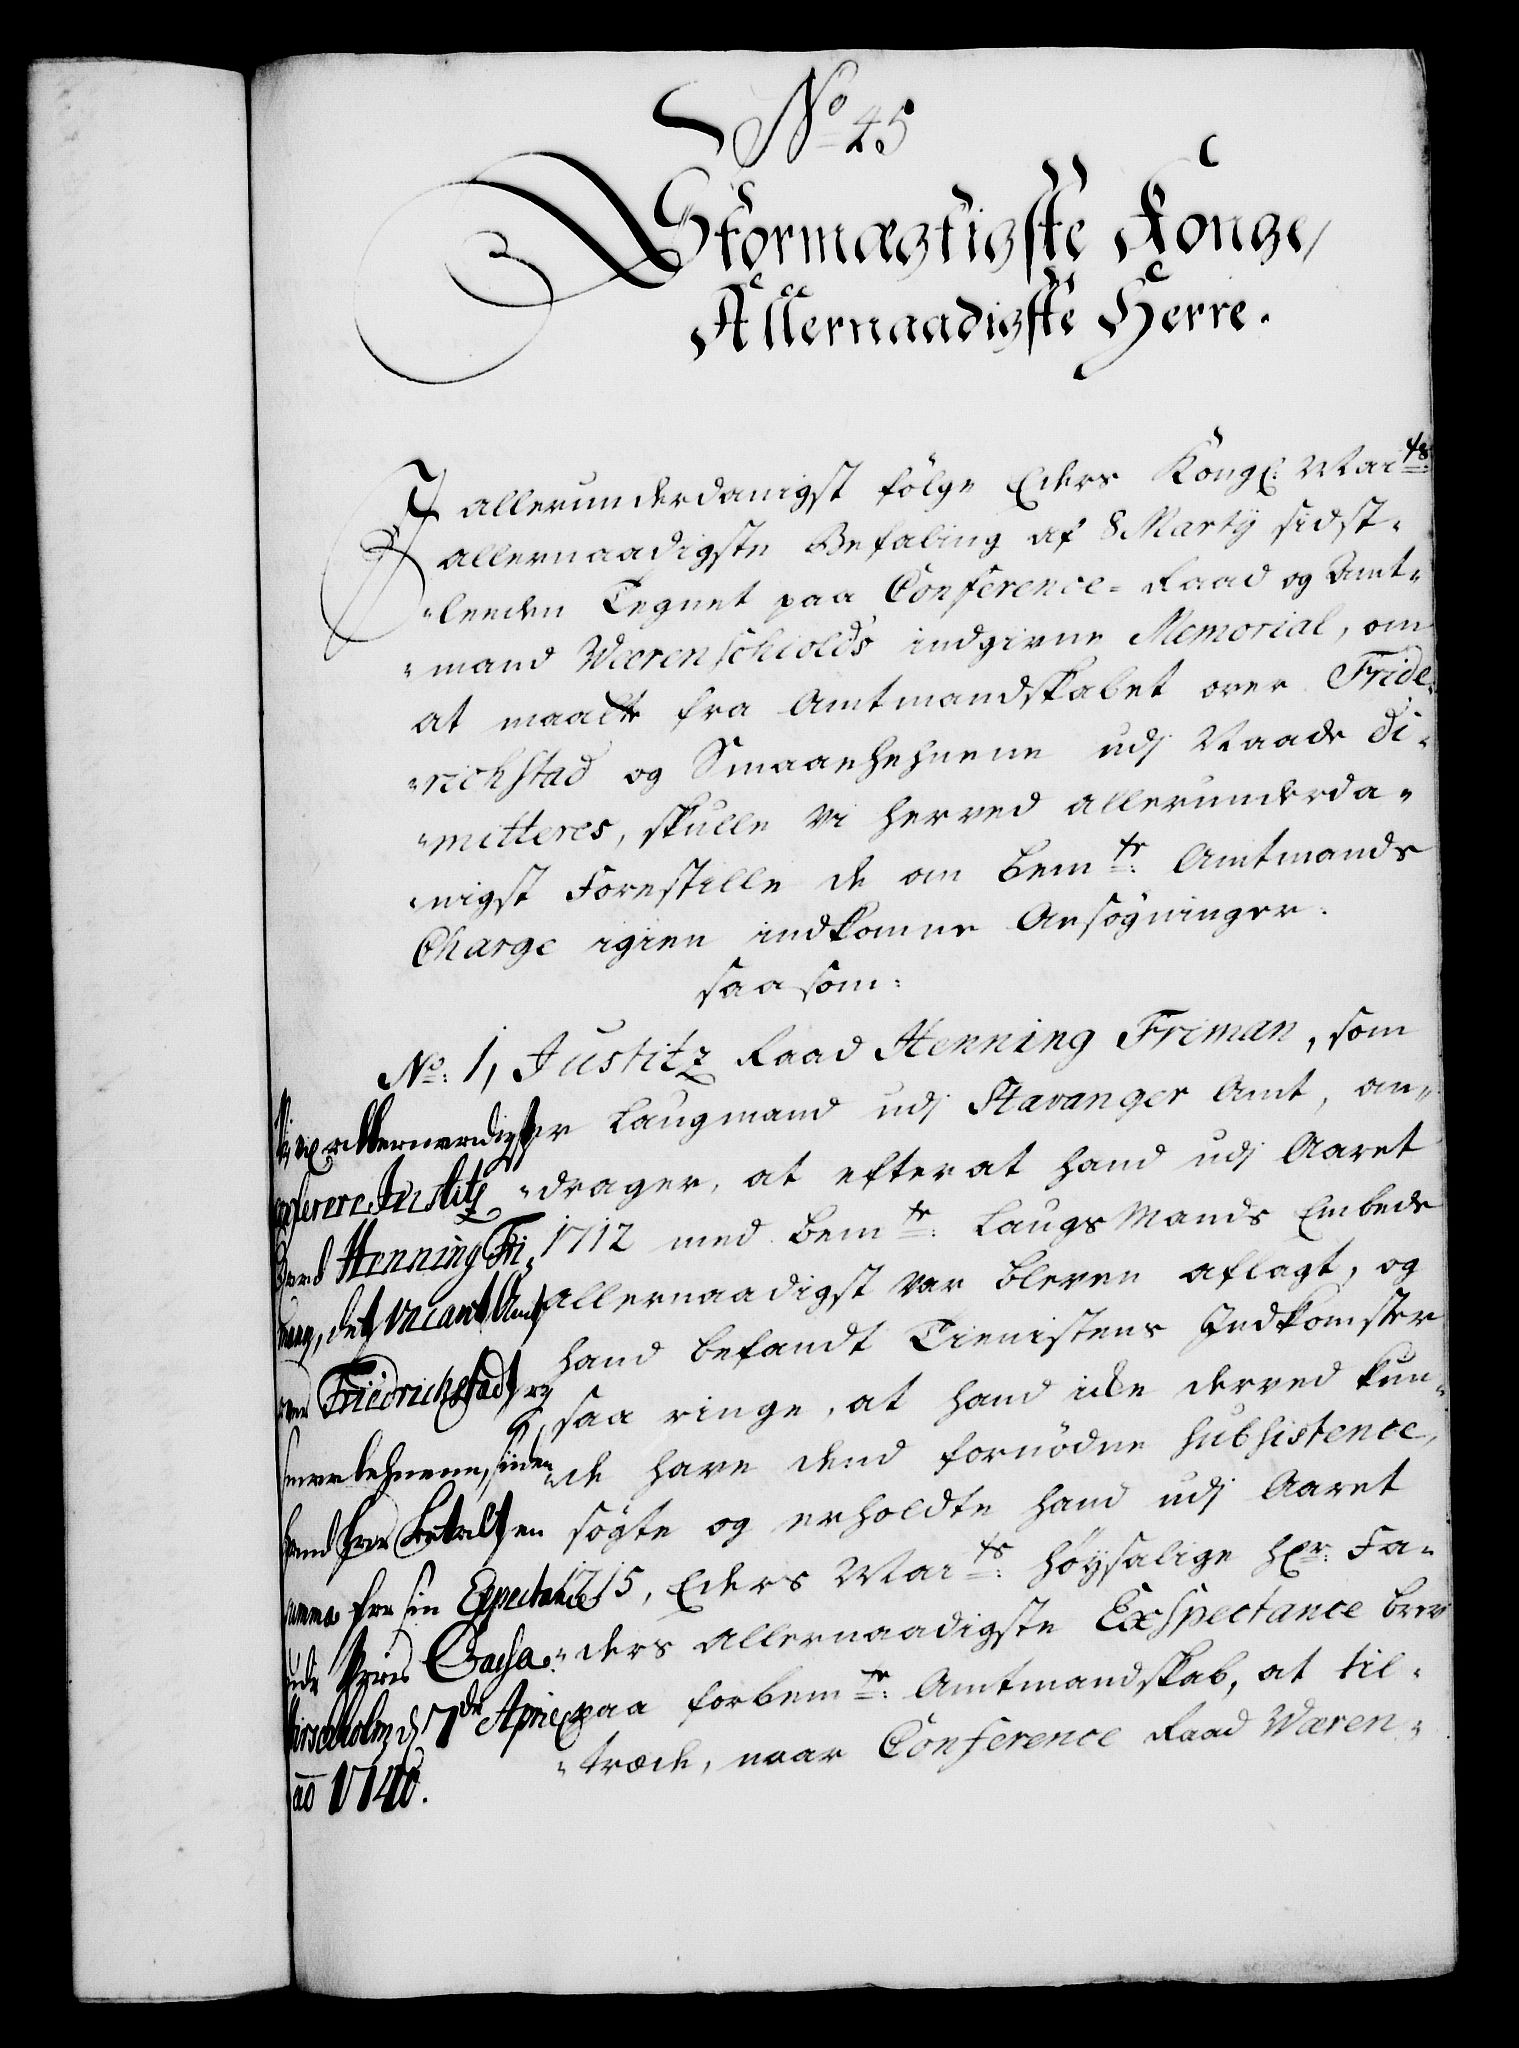 No 45
Stormægtigste Konge,
Allernaadigste Herre.
I allerunderdanigst følge Eders Kongl: Maits:
allernaadigste Befaling af 8 Martÿ sidst-
-leeden Tegnet paa Conference-Raad og Amt-
-mand Wærenschiolds indgivne Memorial, om
at maatte fra Amtmandskabet over Fride-
-richstad og Smaalehnene udj Naade di-
-mitteres, skulle vi herved allerunderda-
-nigst Forestille de om bemte: Amtmands
Charge igien indkomne Ansøgninger.
saasom:
No: 1, Justitz Raad Henning Friman, som
er Laugmand udj Stavanger Amt, an-
-drager, at efterat hand udj Aaret
1712 med bemte: Laugmands Embede
allernaadigst var bleven aflagt, og
hand befandt Tienistens Indkomster
saa ringe, at hand icke derved kun-
-de have dend fornødne subsistence,
søgte og erholdte hand udj Aaret
1715, Eders Maits: høysalige Hr: Fa-
-ders allernaadigste Exspectance brev
paa forbemte: Amtmandskab, at til-
-træde, naar Conference Raad Wæren-
Vi allernaadigst
conferere Justitz
Raad Henning Fri-
mann, det vacant Amt
over Friedrichstad og
Smaalehnene, siden
hand har betalt en
summa for sin Expectance
udj Vores Cassa.
Hirscholm d 7de April
ao 1740.